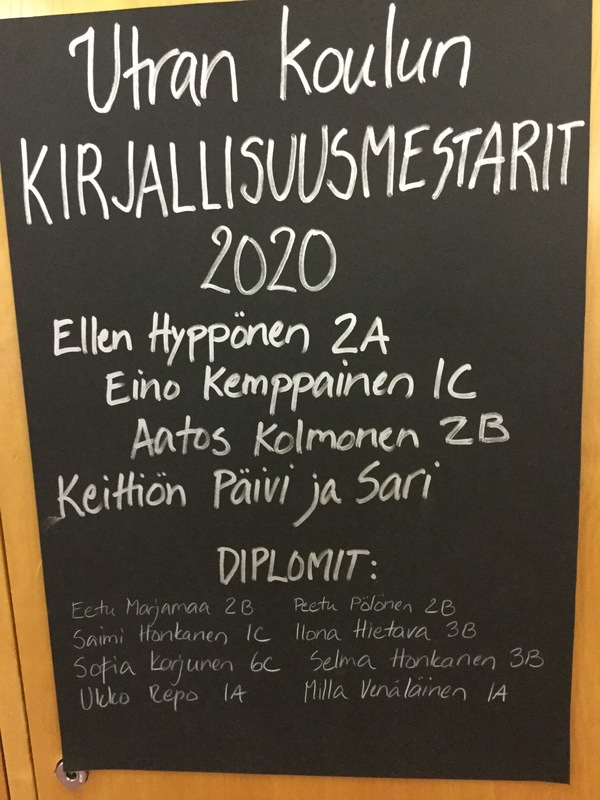 Utran koulun
KIRJALLISUUSMESTARIT
2020
Ellen Hyppönen 2A
Eino Kemppainen 1C
Aatos Kolmonen 2B
Keittiön Päivi ja Sari
DIPLOMIT:
Eetu Marjamaa 2B Peetu Pölönen 2B
Saimi Honkanen 1C Ilona Hietava 3B
Sofia Korjunen 6C Selma Honkanen 3B
Ukko Repo 1A Milla Venäläinen 1A